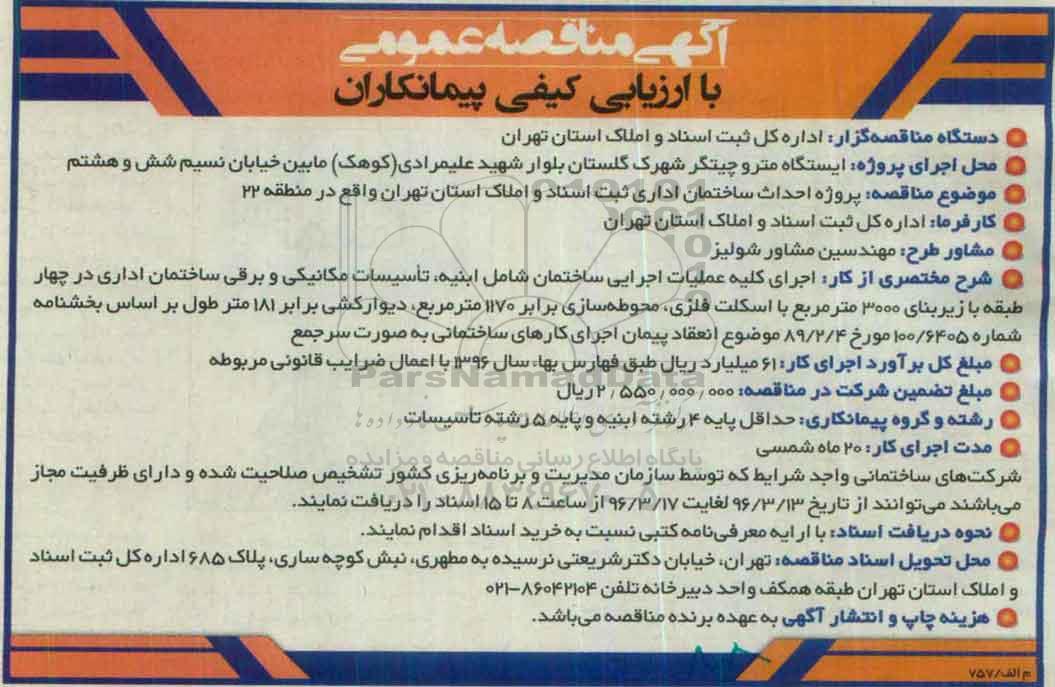 آگهی مناقصه عمومی
با ارزیابی کیفی پیمانکاران
دستگاه مناقصه‌گزار: اداره کل ثبت اسناد و املاک استان تهران
محل اجرای پروژه: ایستگاه مترو چیتگر شهرک گلستان بلوار شهید علیمرادی(کوهک) مابین خیابان نسیم شش و هشتم
موضوع مناقصه: پروژه احداث ساختمان اداری ثبت اسناد و املاک استان تهران واقع در منطقه ۲۲
کارفرما: اداره کل ثبت اسناد و املاک استان تهران
مشاور طرح: مهندسین مشاور شولیز
شرح مختصری از کار: اجرای کلیه عملیات اجرایی ساختمان شامل ابنیه، تأسیسات مکانیکی و برقی ساختمان اداری در چهار
طبقه با زیربنای ۳۰۰۰ مترمربع با اسکلت فلزی، محوطه‌سازی برابر ۱۱۷۰ مترمربع، دیوارکشی برابر ۱۸۱ متر طول بر اساس بخشنامه
شماره ۱۰۰/۶۴۰۵ مورخ ۸۹/۲/۴ موضوع انعقاد پیمان اجرای کارهای ساختمانی به صورت سرجمع
مبلغ کل برآورد اجرای کار: ۶۱ میلیارد ریال طبق فهارس بها، سال ۱۳۹۶ با اعمال ضرایب قانونی مربوطه
مبلغ تضمین شرکت در مناقصه: ۲٫۵۵۰٫۰۰۰٫۰۰۰ ریال
رشته و گروه پیمانکاری: حداقل پایه ۴ رشته ابنیه و پایه ۵ رشته تأسیسات
مدت اجرای کار: ۲۰ ماه شمسی
شرکت‌های ساختمانی واجد شرایط که توسط سازمان مدیریت و برنامه‌ریزی کشور تشخیص صلاحیت شده و دارای ظرفیت مجاز
می‌باشند می‌توانند از تاریخ ۹۶/۳/۱۳ لغایت ۹۶/۳/۱۷ از ساعت ۸ تا ۱۵ اسناد را دریافت نمایند.
نحوه دریافت اسناد: با ارایه معرفی‌نامه کتبی نسبت به خرید اسناد اقدام نمایند.
محل تحویل اسناد مناقصه: تهران، خیابان دکترشریعتی نرسیده به مطهری، نبش کوچه ساری، پلاک ۶۸۵ اداره کل ثبت اسناد
و املاک استان تهران طبقه همکف واحد دبیرخانه تلفن ۸۶۰۴۲۱۰۴-۰۲۱
هزینه چاپ و انتشار آگهی به عهده برنده مناقصه می‌باشد.
م الف/۷۵۷
ParsNamadData
پایگاه اطلاع رسانی مناقصه و مزایده